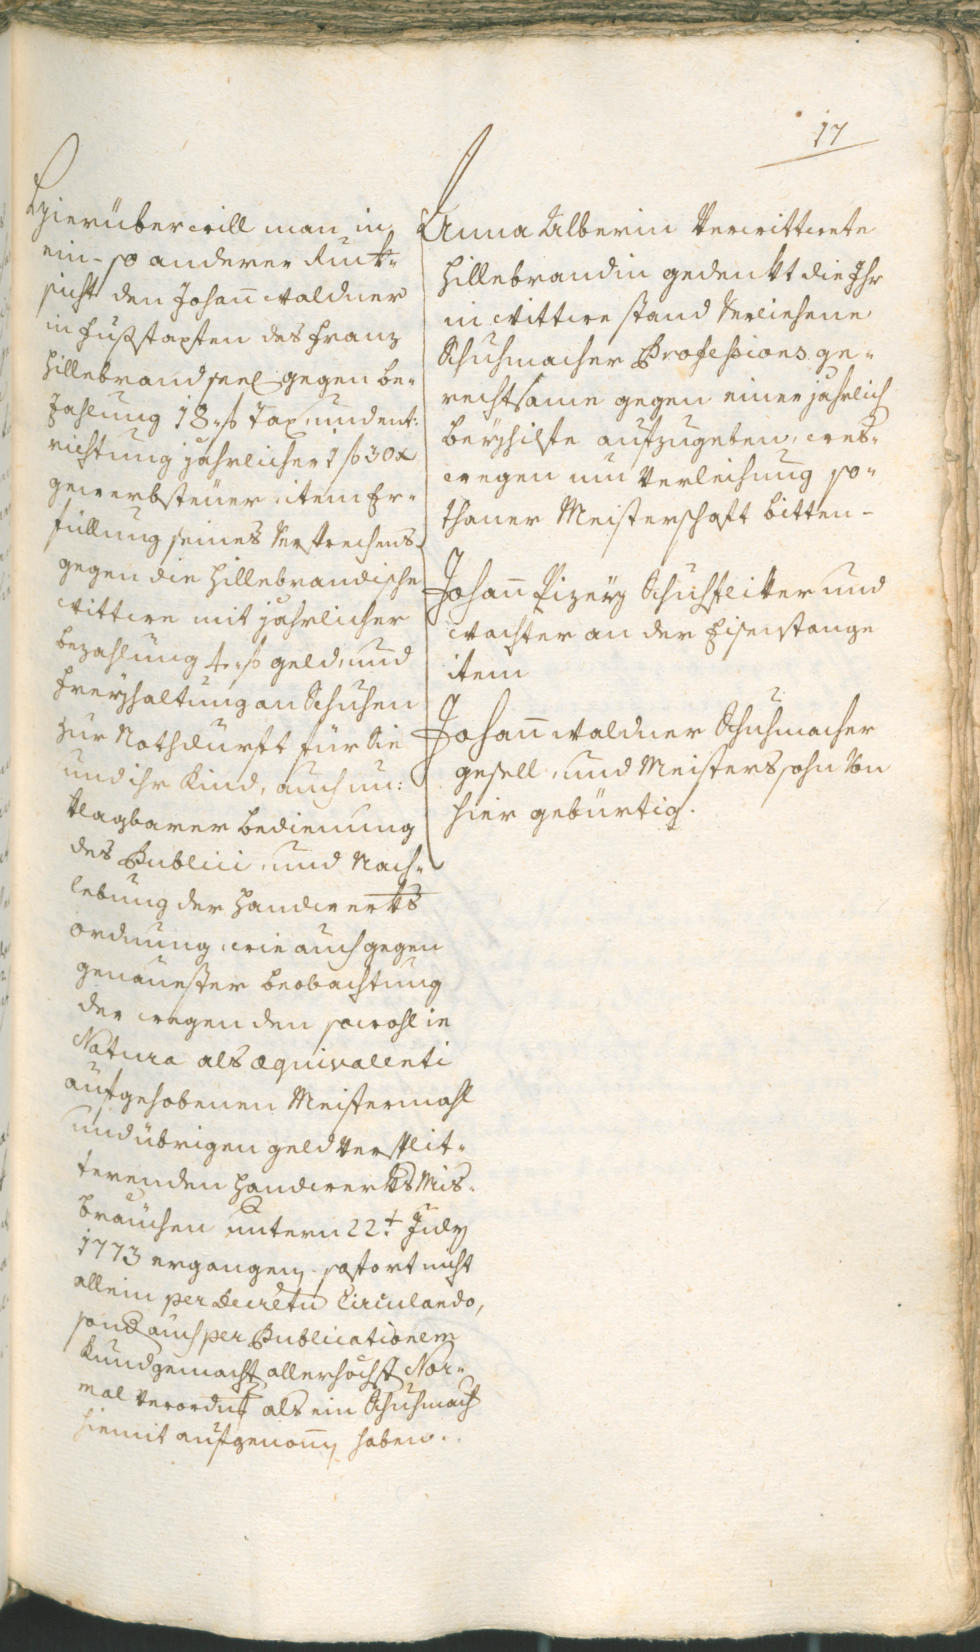 17
Hierüber will man in
ein- so anderer Ruck-
sicht den Johann Waldner
in Fußstapfen des Franz
Hillebrand seel. gegen be-
zahlung 18 f Tax, und ent:
richtung jährlicher 1 f 30 x
gewerbsteuer, item Er-
füllung seines Versprechens
gegen die Hillebrandische
Wittwe mit jährlicher
bezahlung 4 f geld, und
Freyhaltung an Schuhen
zur Nothdurft für Sie
und ihr Kind, auch un:
klagbarer bedienung
des Publici, und Nach-
lebung der Handwerks
ordnung, wie auch gegen
genauester beobachtung
der wegen den sowohl in
Natura als æquivalenti
aufgehobenen Meistermahl
und übrigen geld Versplit-
terenden Handwerks Mis-
bräuchen untern 22t July
1773 ergangen, sofort nicht
allein per Decretu Circulando,
sond auch per Publicationem
kundgemacht allerhöchst Nor-
mal Verordng als ein Schuhmach
hiemit aufgenomn haben.
Anna Alberin Verwittwete
Hillebrandin gedenkt die Ihr
in Wittwe stand Verliehene
Schuhmacher Professions ge-
rechtsame gegen einer jährlich
beyhilfe aufzugeben, wes-
wegen um Verleihung so-
thaner Meisterschaft bitten -
Johann Schuhflicker und
Wachter an der Eisenstange
item
Johann Waldner Schuhmacher
gesell, und Meisterssohn Von
hier gebürtig.